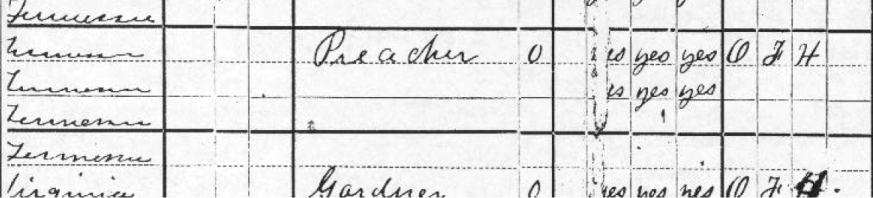 Tennessee
Tennessee Preacher 0 yes yes yes O F H
Tennessee yes yes yes
Tennessee
Tennessee
Virginia Gardner 0 yes yes yes O F H